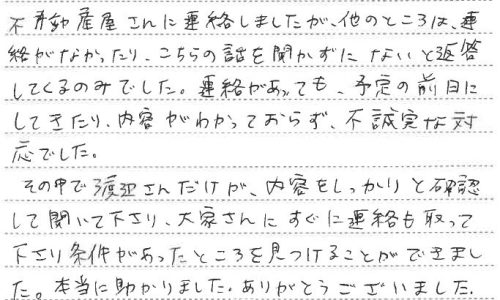 不動産屋さんに連絡しましたが、他のところは、連
絡がなかったり、こちらの話を聞かずに ないと返答
してくるのみでした。連絡があっても、予定の前日に
してきたり、内容がわかっておらず、不誠実な対
応でした。
その中で渡辺さんだけが、内容をしっかりと確認
して聞いて下さり、大家さんに すぐに連絡も取って
下さり条件があったところを見つけることができまし
た。本当に助かりました。ありがとうございました.